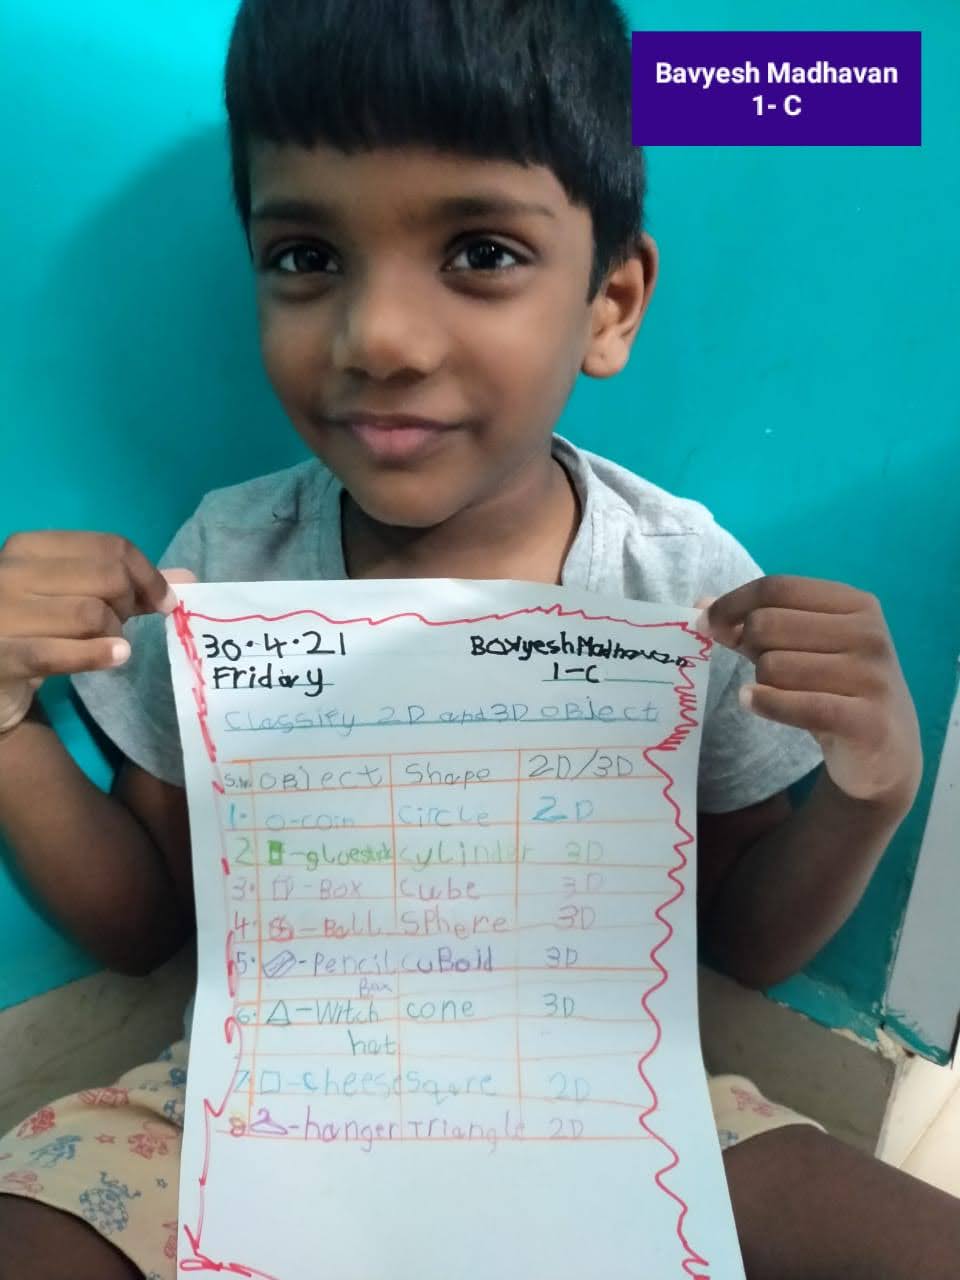 Bavyesh Madhavan
1- C
30.4.21 Bavyesh Madhavan
Friday 1-C
Classify 2D and 3D OBJect
S.no OBJect Shape 2D/3D
1. O-coin Circle 2D
2 -gluestick cylinder 3D
3. -Box Cube 3D
4. -Ball SPhere 3D
5. -Pencil cuBoid 3D
Box
6. -Witch cone 3D
hat
7. -cheese Sqare 2D
8 -hanger Triangle 2D